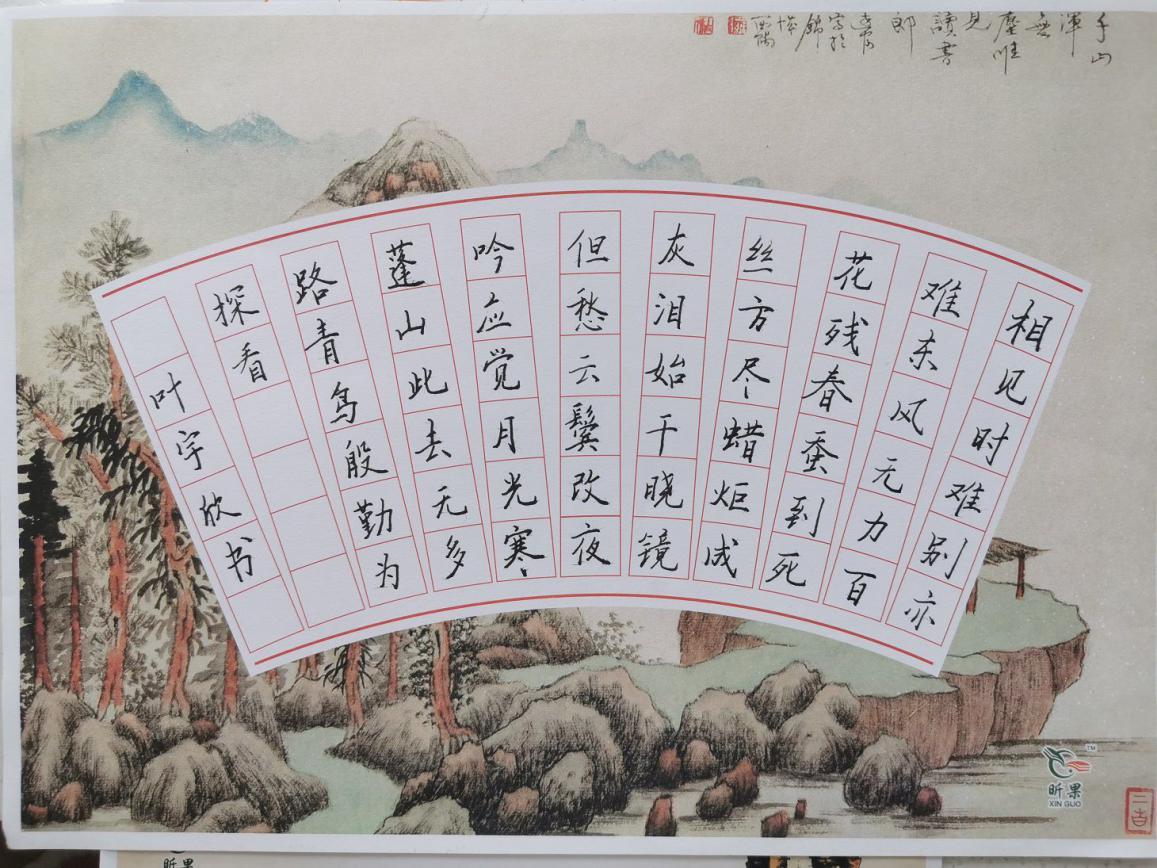 渾
無
塵唯
見
讀書
郎
寫於
錦
相见时难别亦
难东风无力百
花残春蚕到死
丝方尽蜡炬成
灰泪始干晓镜
但愁云鬓改夜
吟应觉月光寒
蓬山此去无多
路青鸟殷勤为
探看
叶宇欣书
TM
昕果
XIN GUO
昕果